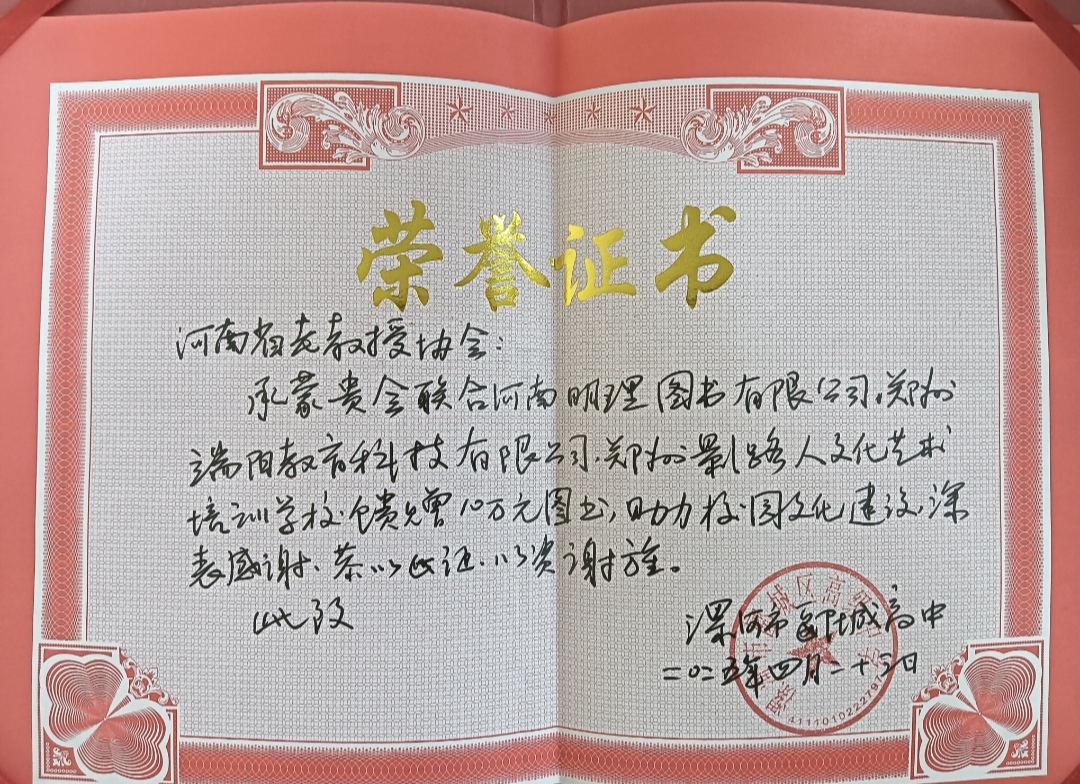 荣誉证书
河南省老教授协会：
承蒙贵会联合河南明理图书有限公司、郑州
端阳教育科技有限公司、郑州影路人文化艺术
培训学校馈赠10万元图书，助力校园文化建设，深
表感谢、恭以此证、以资谢旌。
此致
漯河市郾城高中
二〇二五年四月二十三日
4111010222797